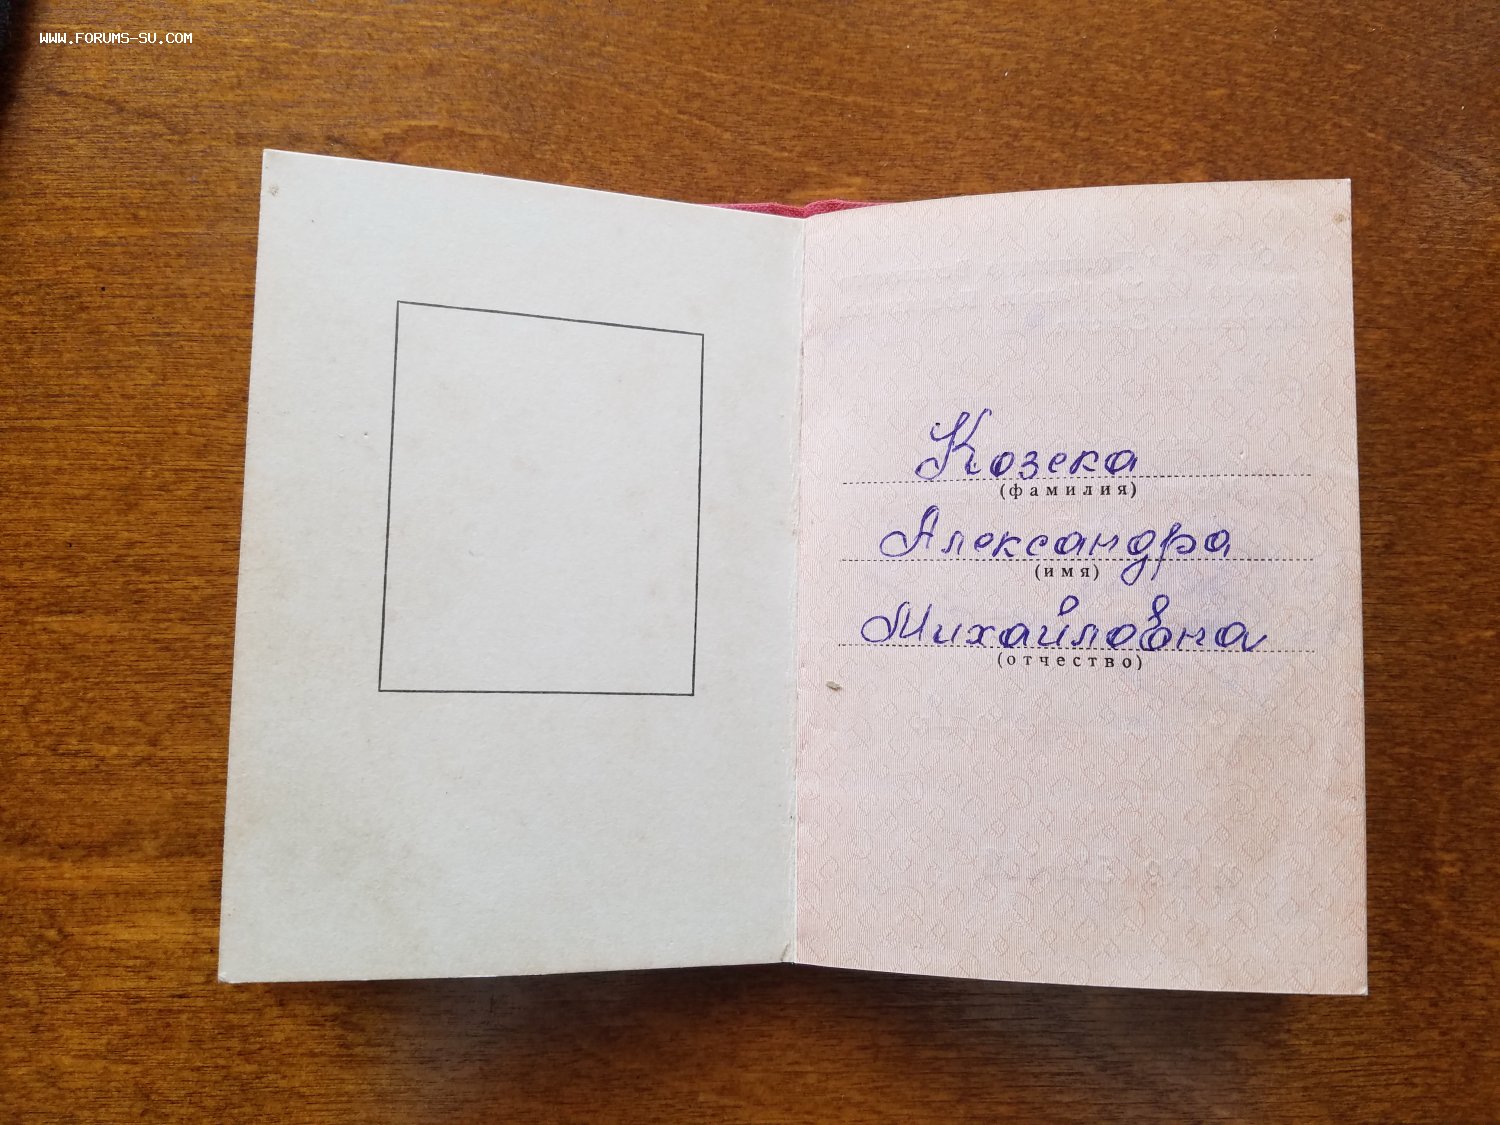 WWW.FORUMS-SU.COM
Козека
(фамилия)
Александра
(имя)
Михайловна
(отчество)